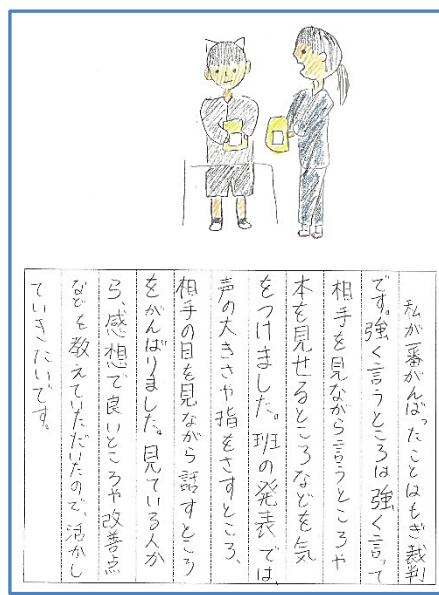 私が一番がんばったことはもぎ裁判
です。強く言うところは強く言って
相手を見ながら言うところや
本を見せるところなどを気
をつけました。班の発表では、
声の大きさや指をさすところ、
相手の目を見ながら話すところ
をがんばりました。見ている人か
ら、感想で良いところや改善点
などを教えていただいたので、活かし
ていきたいです。